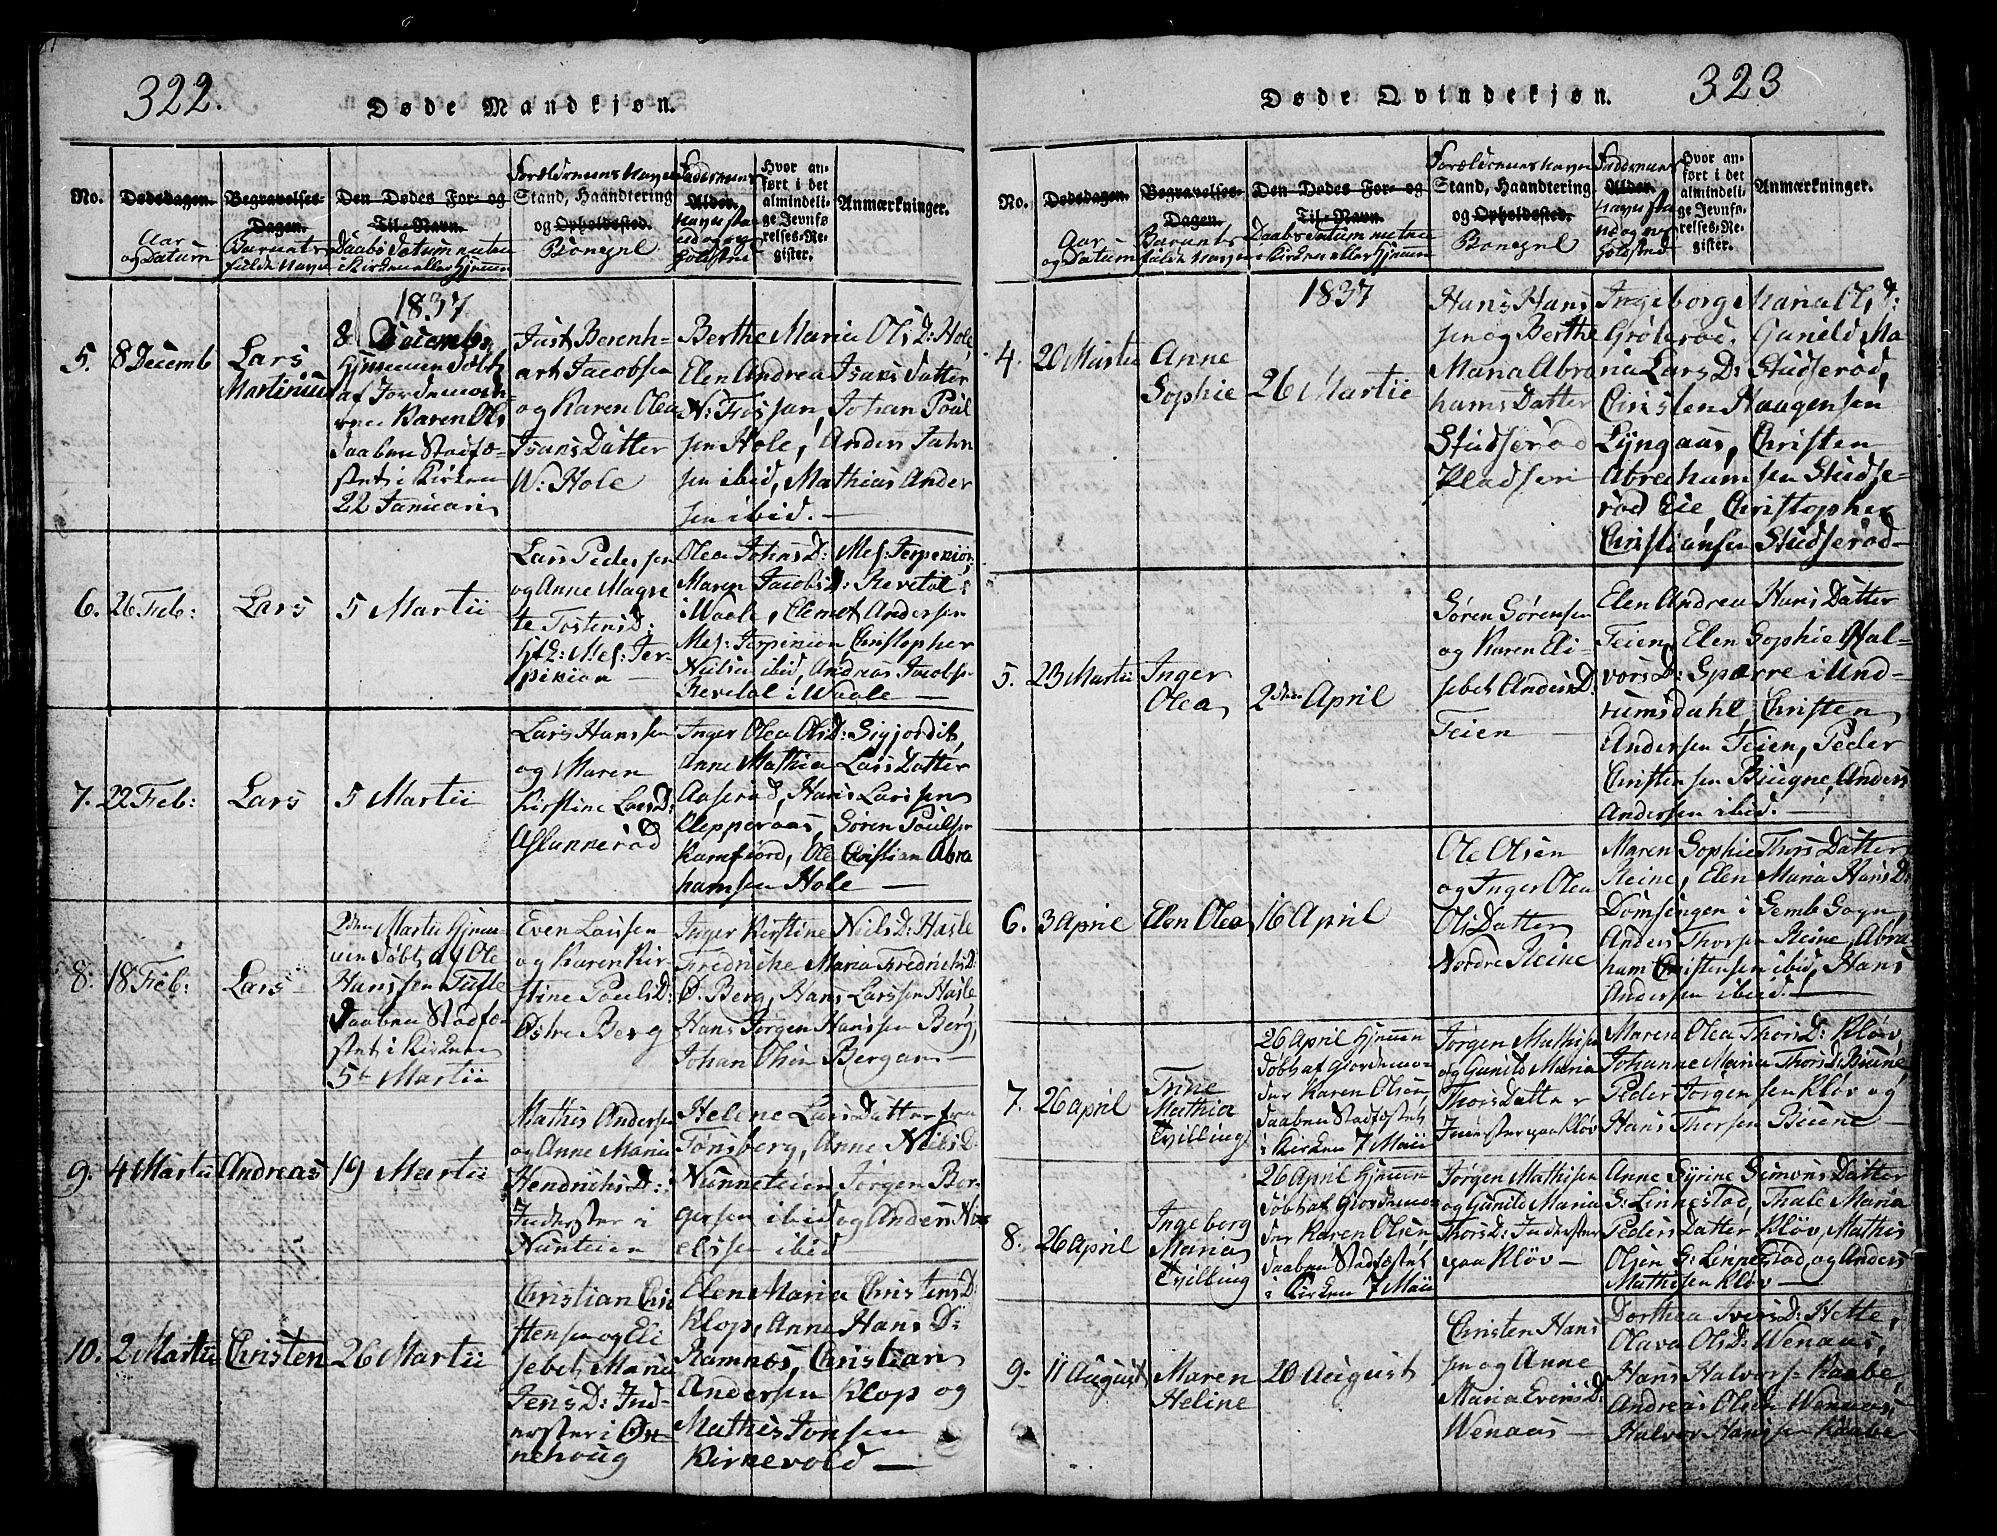 322.
Døde Mandkjøn.
No.
Dødsdagen.
Aar
og Datum
Begravelses-
Dagen.
Barnets
fulde Navn
Den Dødes For- og
Til-Navn.
Daabs Datum enten
i Kirken eller Hjemme
Forældrenes Navn
Stand, Haandtering
og Opholdssted.
Bonævnl
Faddernes
Alder.
Navn, Stand
og op-
holdsted
Hvor an-
ført i det
almindeli-
ge Jevnfø-
relses-Re-
gister.
Anmærkninger.
5.
8 Decemb
Lars
Martinius
1837
8 Decemb.
Hjemmedøbt
af Jordemod-
eren Karen Ols
Daaben Stadfæ-
stet i Kirken
22 Januari
Just Berenh-
art Jacobsen
og Karen Olea
Isaks Datter
W: Hole
Berthe Maria Ols D: Hole,
Elen Andrea Isaks Datter
N: Fossan, Johan Poul
sen Hole, Anders Jahn
sen ibid, Mathias Ander
sen ibid. —
6.
26 Feb:
Lars
5 Martii
Lars Pedersen
og Anne Magre
te Tostens D:
Mel: Jer-
pekiøn
Olea Johns D: Mel: Jerpekiøn,
Maren Jacobs D: Revetal
i Waale, Clemet Andersen
Mel: Jerpekiøn Christopher
Nielsen ibid, Andreas Jacobse
Revetal i Waale —
7.
22 Feb:
Lars
5 Martii
Lars Hanssen
og Maren
Kirstine Lars D:
Aslannerød
Inger Olea Ols D: Sigjordet,
Anne Mathia Lars Datter
Aaserød, Hans Larssen
Klepperaas, Søren Poulsen
Ramfiord, Ole Christian Abra
hamsen Hole —
8:
18 Feb:
Lars
2den Martii Hjem-
men døbt af Ole
Hanssen Tufte
Daaben Stadfæ-
stet i Kirken
5te Martii
Even Larsen
og Karen Kir-
stine Pouls D:
Østre Berg
Inger Kirstine Niels D: Hasle
Fredricke Maria Fredrichs D:
Ø. Berg, Hans Larssen Hasle,
Hans Jørgen Hanssen Berg,
Johan Olsen Bergan —
9.
4 Martii
Andreas
19 Martii
Mathis Andersen
og Anne Maria
Hendrichs D:
Inderster i
Nunteien
Helene Lars Datter fra
Tønsberg, Anne Niels D:
Nunneteien, Jørgen Bor-
gersen ibid og Anders Ni-
elssen ibid
10.
2 Martii
Christen
26 Martii
Christian Chri
stensen og Eli
sebeth Maria
Jens D: Ind-
erster i Øst-
nehoug
Elen Maria Christens D:
Klop, Anne Hans D:
Ramnes, Christian
Andersen Klop og
Mathis Jonsen
Kirnevold —
Døde Qvindekjøn.
323
No.
Dødsdagen.
Aar
og Datum
Begravelses-
Dagen.
Barnets
fulde Navn
Den Dødes For- og
Til-Navn.
Daabs Datum enten
i Kirken eller Hjemme
Forældrenes Navn
Stand, Haandtering
og Opholdssted.
Bonævnl
Faddernes
Alder.
Navn, Sta
nd og op-
holdsted
Hvor an-
ført i det
almindeli-
ge Jevnfø-
relses-Re-
gister.
Anmærkninger.
4.
20 Martii
Anne
Sophie
1837
26 Martii
Hans Hans
sen og Berthe
Maria Abra
hams Datter
Studserød
Pladsen
Ingeborg Maria Ols D:
Grølerød, Gunild Ma
ria Lars D: Studserød,
Christen Haagensen
Lyngaas, Christen
Abrahamsen Studse-
rød Eie Christopher
Christiansen Studserød —
5.
23 Martii
Inger
Olea
2den April
Søren Sørensen
og Karen Eli-
sebeth Anders D:
Feien
Elen Andrea Hans Datter
Feien, Elen Sophie Hal-
vors D: Sparre i Und-
rumsdahl, Christen
Andersen Feien, Peder
Christensen Biugne, Anders
Andersen ibid. —
6.
3 April
Elen Olea
16 April
Ole Olsen
og Inger Olea
Ols Datter
Nordre Reine
Maren Sophie Thors Datter
Reine, Elen Maria Hans D:
Domsengen i Semb Sogn,
Anders Thorsen Reine, Abra
ham Christensen ibid, Hans
Andersen ibid. —
7.
26 April
Trine
Mathia
Tvilling
26 April Hjemmen
døbt af Giordemo-
der Karen Olsen,
Daaben Stadfæstet
i Kirken 7 Maii
Jørgen Mathisen
og Gunild Maria
Thors Datter
Inderster paa Kløv
Maren Olea Thors D: Kløv,
Johanne Maria Thors D: Biune,
Peder Jørgensen Kløv og
Hans Thorsen Biune —
8.
26 April
Ingeborg
Maria
Tvilling
26 April Hjemmen
døbt af Giordemo
der Karen Olsen
Daaben Stadfæstet
i Kirken 7 Maii
Jørgen Mathisen
og Gunild Maria
Thors D: Inderster
paa Kløv —
Anne Syrine Simons Datter
S: Linnestad, Thale Maria
Peders Datter Kløv, Mathis
Olsen S: Linnestad, og Anders
Mathisen Kløv —
9.
11 August
Maren
Heline
20 August
Christen Hans
sen og Anne
Maria Evens D:
Wenaas —
Dorthea Ivers D: Hette,
Olava Ols D: Wenaas,
Hans Halvors: Raabe,
Andreas Olsen Wenaas,
Halvor Hanssen Raabe